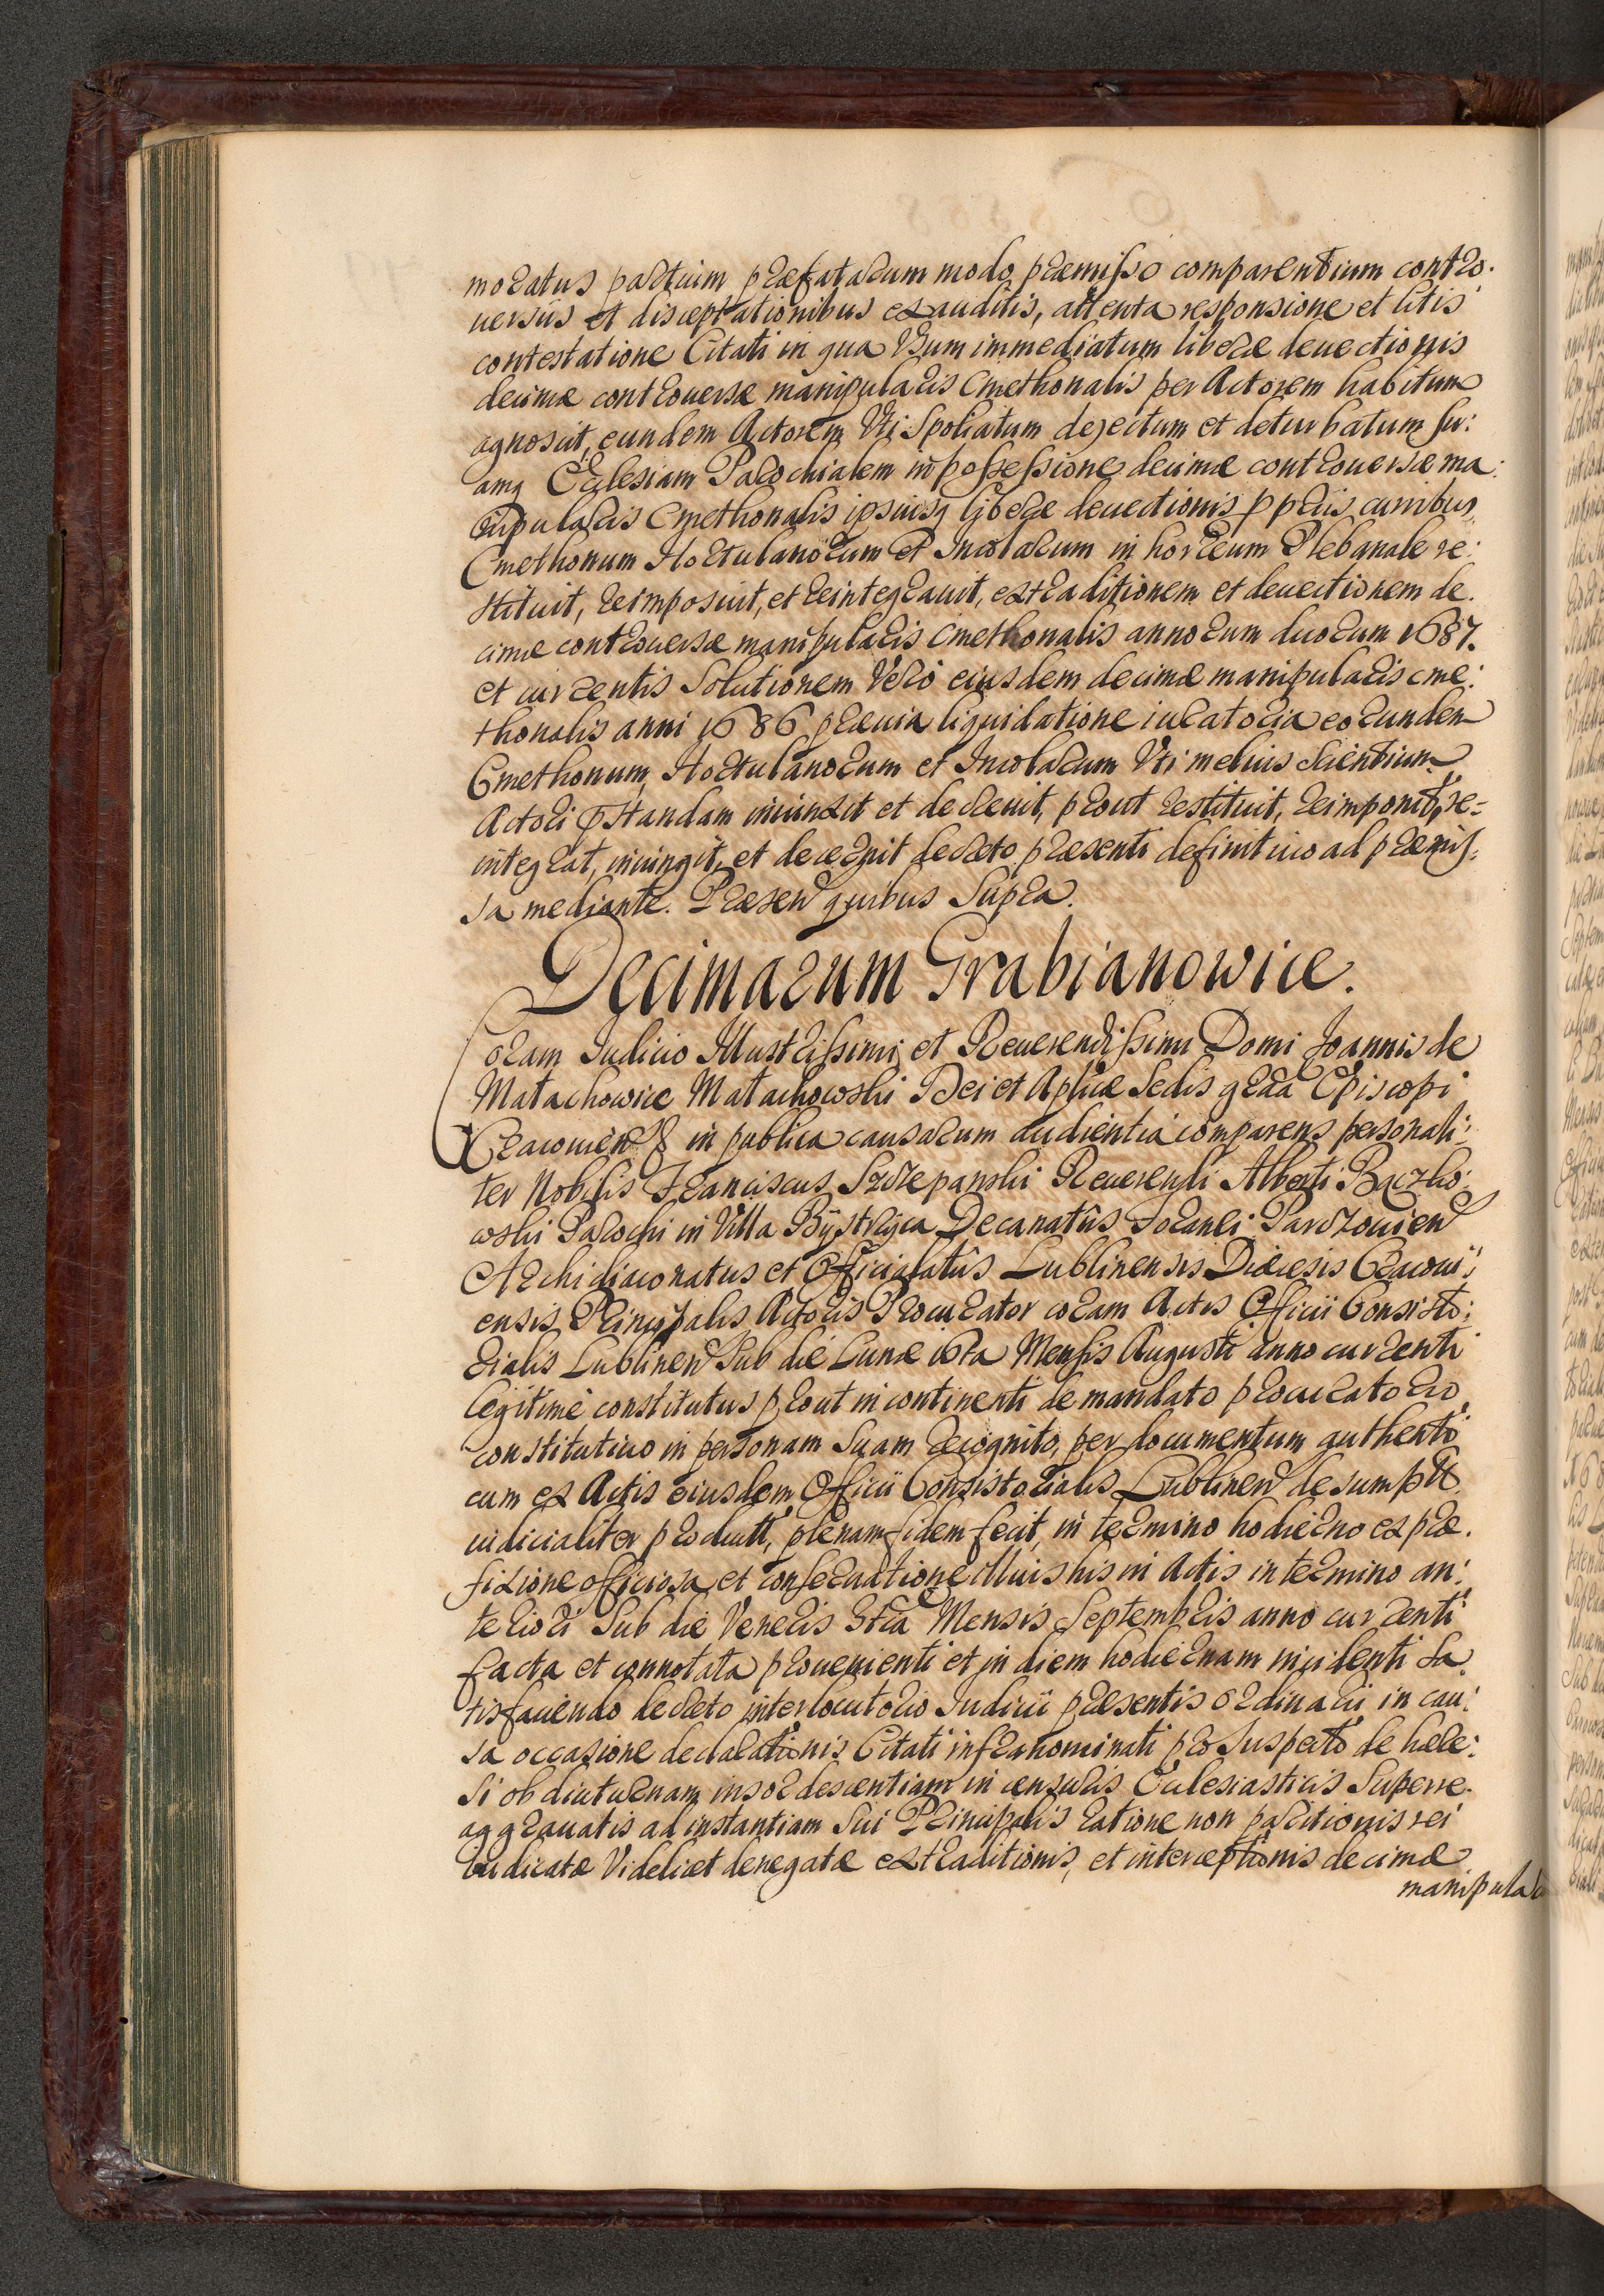 moratus partium præfatarum modo præmisso comparentium contro.
uersiis et disceptationibus exauditis, attenta responsione et litis
contestatione Citati in qua Vsum immediatum liberæ deuectionis
decimæ controuersæ manipularis Cmethonalis per Actorem habitum
agnoscit, eundem Actorem Vti Spoliatum dejectum et deturbatum su:
amq Ecclesiam Parochialem in possessione decimæ controuersæ ma:
nipularis Cmethonalis ipsiusq liberæ deuectionis pprijs curribus
Cmethonum Hortulanorum et Incolarum in horreum Plebanale re:
stituit, reimposuit, et reintegrauit, extraditionem et deuectionem de.
cimæ controuersæ manipularis Cmethonalis annorum duorum 1687.
et currentis Solutionem Vero eiusdem decimæ manipularis cme:
thonalis anni 1686 præuia liquidatione iuratoria eorundem
Cmethonum, Hortulanorum et Incolarum Vti melius Scientium
Actori pstandam iniunxit et decreuit, prout restituit, reimponit, re=
integrat, iniungit, et decernit decreto præsenti definitiuo ad præmis:
sa mediante. Præsen quibus Supra.
Decimarum Grabianowice.
Coram Iudicio Illustrissimi et Reuerendissimi Domi Joannis de
Małachowice Małachowski Dei et Aplicæ Sedis grãa Episcopi
Cracouien & in publica causarum audientia comparens personali:
ter Nobilis Franciscus Szczepanski Reuerendi Alberti Bączko:
wski Parochi in Villa Bÿstrzÿca Decanatûs Foranei Parczouien
Archidiaconatus et Officialatûs Lublinensis Diæcesis Cracoui:
ensis Principalis Actoris Procurator coram Actis Officii Consisto:
rialis Lublinen Sub die Lunæ 16ta Mensis Augusti anno currenti
legitime constitutus prout in continenti de mandato procuratorio
constitutiuo in personam Suam recognito, per documentum authenti
cum ex Actis eiusdem Officii Consistorialis Lublinen desumptu
iudicialiter productu, plenam fidem fecit, in termino hodierno ex præ.
fixione officiosa et conseruatione illius his in Actis in termino an:
teriori Sub die Veneris 3tia Mensis Septembris anno currenti
facta et connotata prouenienti et in diem hodiernam incidenti Sa
tisfaciendo decreto interlocutorio Iudicii præsentis ordinarii in cau:
sa occasione declarationis Citati infranominati pro Suspecto de hære:
si ob diuturnam insordescentiam in censuris Ecclesiasticis Superre.
aggrauatis ad instantiam Sui Principalis ratione non paritionis rei
iudicatæ Videlicet denegatæ extraditionis, et interceptionis decimæ
manipula